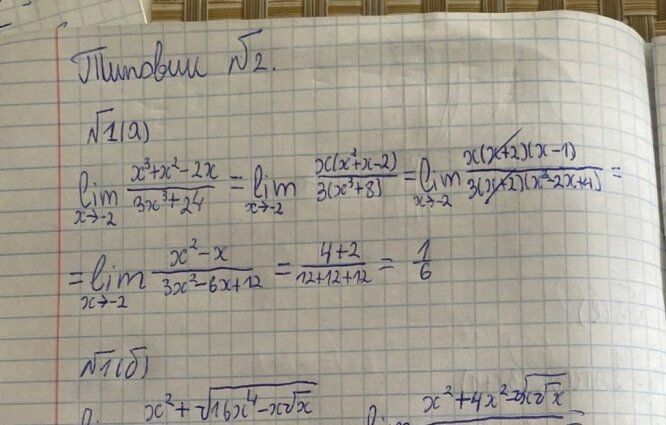 Типовик №2.
№1(а)
lim x→-2 (x³+x²-2x)/(3x³+24) = lim x→-2 x(x²+x-2)/3(x³+8) = lim x→-2 x(x+2)(x-1)/3(x+2)(x²-2x+4) =
= lim x→-2 (x²-x)/(3x²-6x+12) = (4+2)/(12+12+12) = 1/6
№1(б)
x²+√(16x⁴-x√x)